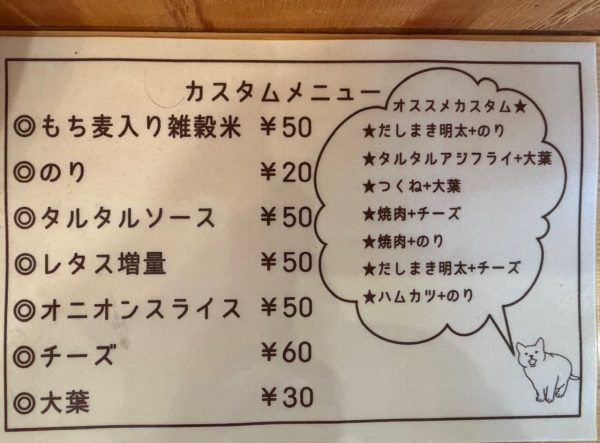 カスタムメニュー
◎もち麦入り雑穀米 ¥50
◎のり ¥20
◎タルタルソース ¥50
◎レタス増量 ¥50
◎オニオンスライス ¥50
◎チーズ ¥60
◎大葉 ¥30
オススメカスタム★
★だしまき明太+のり
★タルタルアジフライ+大葉
★つくね+大葉
★焼肉+チーズ
★焼肉+のり
★だしまき明太+チーズ
★ハムカツ+のり